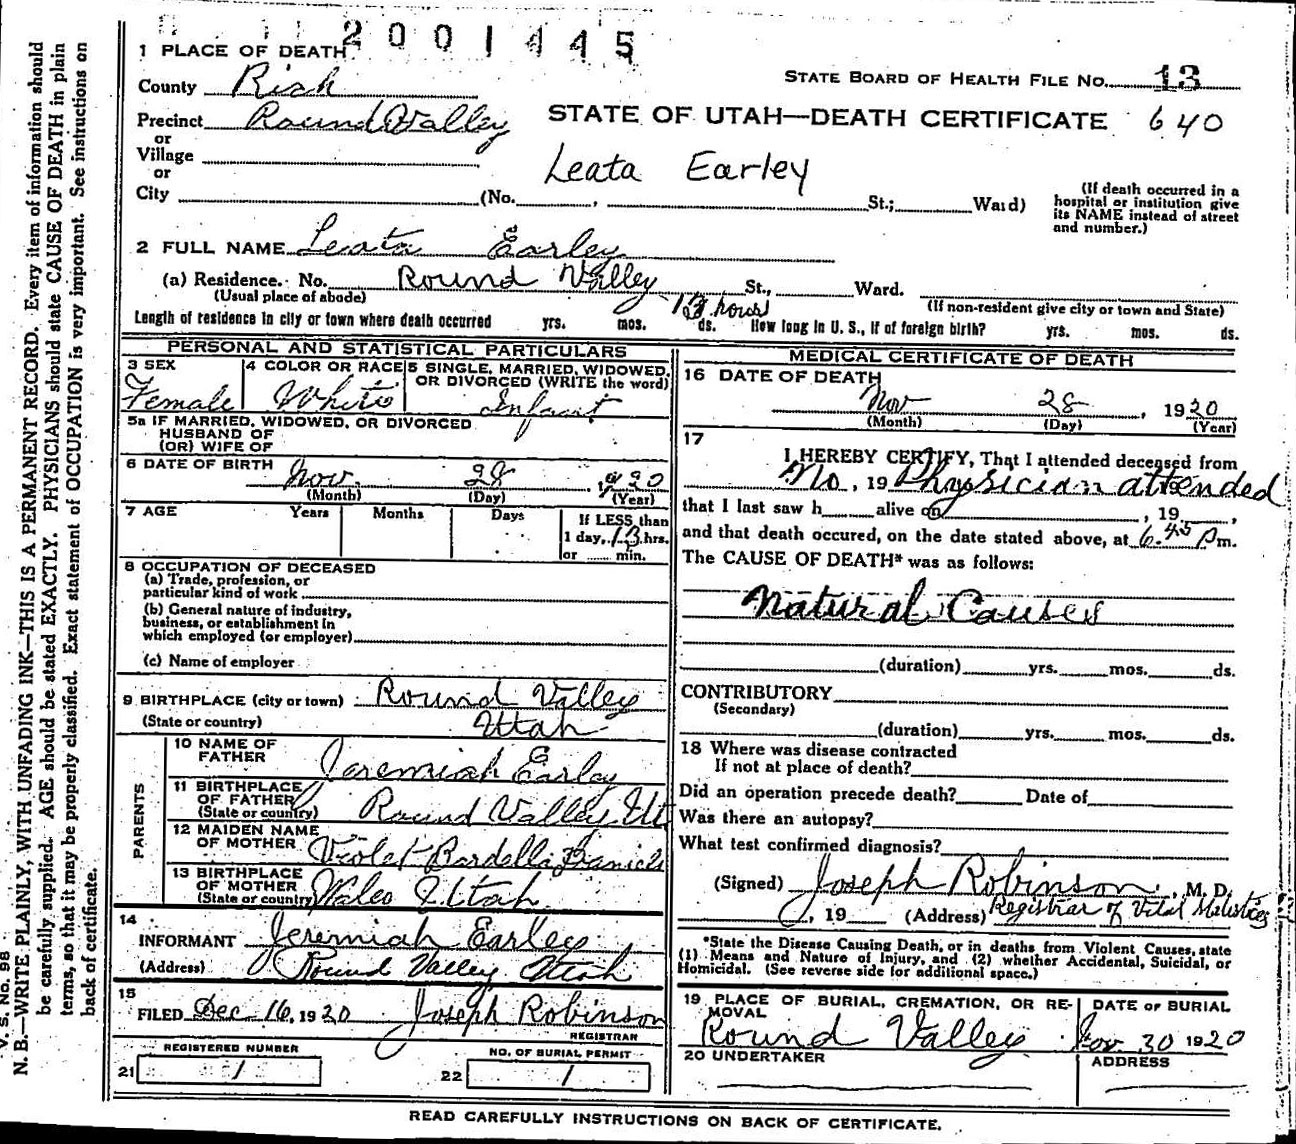 2001445
1 PLACE OF DEATH
STATE BOARD OF HEALTH FILE NO. 13
County Rich
Precinct Round Valley
STATE OF UTAH—DEATH CERTIFICATE 640
or
Village
Leata Earley
or
City (No. , St.; Ward)
(If death occurred in a
hospital or institution give
its NAME instead of street
and number.)
2 FULL NAME Leata Earley
(a) Residence. No. Round Valley St., Ward.
(Usual place of abode) (If non-resident give city or town and State)
13 hours
Length of residence in city or town where death occurred yrs. mos. ds. How long in U. S., if of foreign birth? yrs. mos. ds.
PERSONAL AND STATISTICAL PARTICULARS
3 SEX
Female
4 COLOR OR RACE
White
5 SINGLE, MARRIED, WIDOWED,
OR DIVORCED (WRITE the word)
Infant
5a IF MARRIED, WIDOWED, OR DIVORCED
HUSBAND OF
(OR) WIFE OF
6 DATE OF BIRTH Nov. 28 , 1920
(Month) (Day) (Year)
7 AGE Years Months Days
If LESS than
1 day, 13 hrs.
or min.
8 OCCUPATION OF DECEASED
(a) Trade, profession, or
particular kind of work
(b) General nature of industry,
business, or establishment in
which employed (or employer)
(c) Name of employer
9 BIRTHPLACE (city or town) Round Valley
(State or country) Utah
PARENTS
10 NAME OF
FATHER Jeremiah Earley
11 BIRTHPLACE
OF FATHER
(State or country) Round Valley Ut
12 MAIDEN NAME
OF MOTHER Violet Bardella Daniels
13 BIRTHPLACE
OF MOTHER
(State or country) Wales Utah
14
INFORMANT Jeremiah Earley
(Address) Round Valley Utah
15
FILED Dec 16, 1920 Joseph Robinson
REGISTRAR
REGISTERED NUMBER
21 1
NO. OF BURIAL PERMIT
22 1
MEDICAL CERTIFICATE OF DEATH
16 DATE OF DEATH
Nov 28 , 1920
(Month) (Day) (Year)
17
I HEREBY CERTIFY, That I attended deceased from
No , 19 Physician attended 19
that I last saw h alive on , 19 ,
and that death occured, on the date stated above, at 6.45 Pm.
The CAUSE OF DEATH* was as follows:
Natural Causes
(duration) yrs. mos. ds.
CONTRIBUTORY
(Secondary)
(duration) yrs. mos. ds.
18 Where was disease contracted
If not at place of death?
Did an operation precede death? Date of
Was there an autopsy?
What test confirmed diagnosis?
(Signed) Joseph Robinson , M. D.
, 19 (Address) Registrar of Vital Statistics
*State the Disease Causing Death, or in deaths from Violent Causes, state
(1) Means and Nature of Injury, and (2) whether Accidental, Suicidal, or
Homicidal. (See reverse side for additional space.)
19 PLACE OF BURIAL, CREMATION, OR RE-
MOVAL
Round Valley
DATE OF BURIAL
Nov. 30 1920
20 UNDERTAKER
ADDRESS
READ CAREFULLY INSTRUCTIONS ON BACK OF CERTIFICATE.
V. S. No. 98
N. B.—WRITE PLAINLY, WITH UNFADING INK—THIS IS A PERMANENT RECORD. Every item of information should
be carefully supplied. AGE should be stated EXACTLY. PHYSICIANS should state CAUSE OF DEATH in plain
terms, so that it may be properly classified. Exact statement of OCCUPATION is very important. See instructions on
back of certificate.